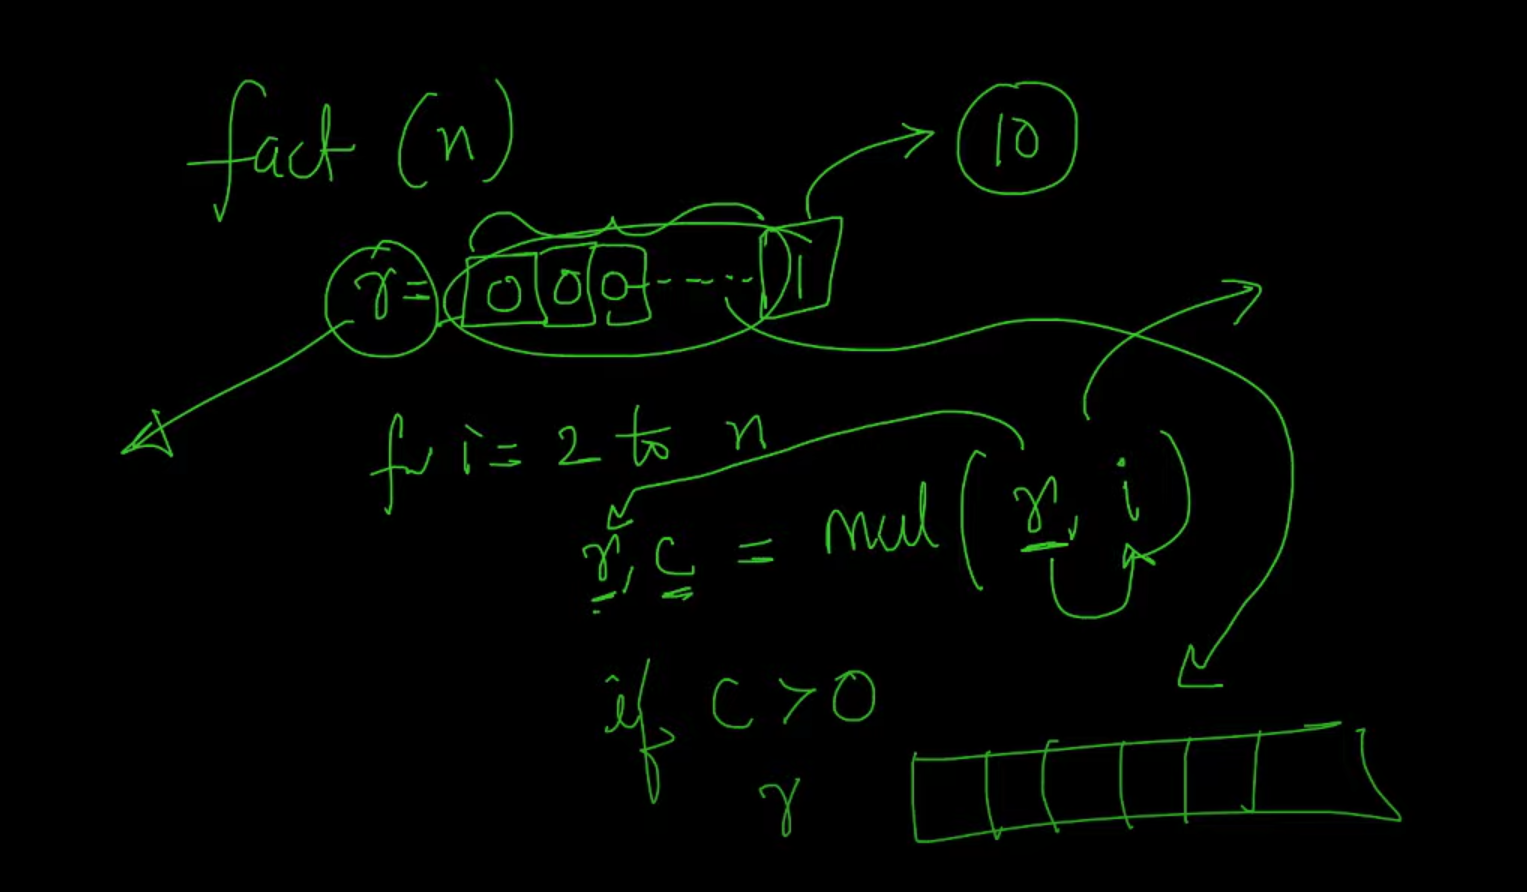 fact (n)
10
r = 0 0 0 ----- 1
for i = 2 to n
r, c = mul (r, i)
if c > 0
r